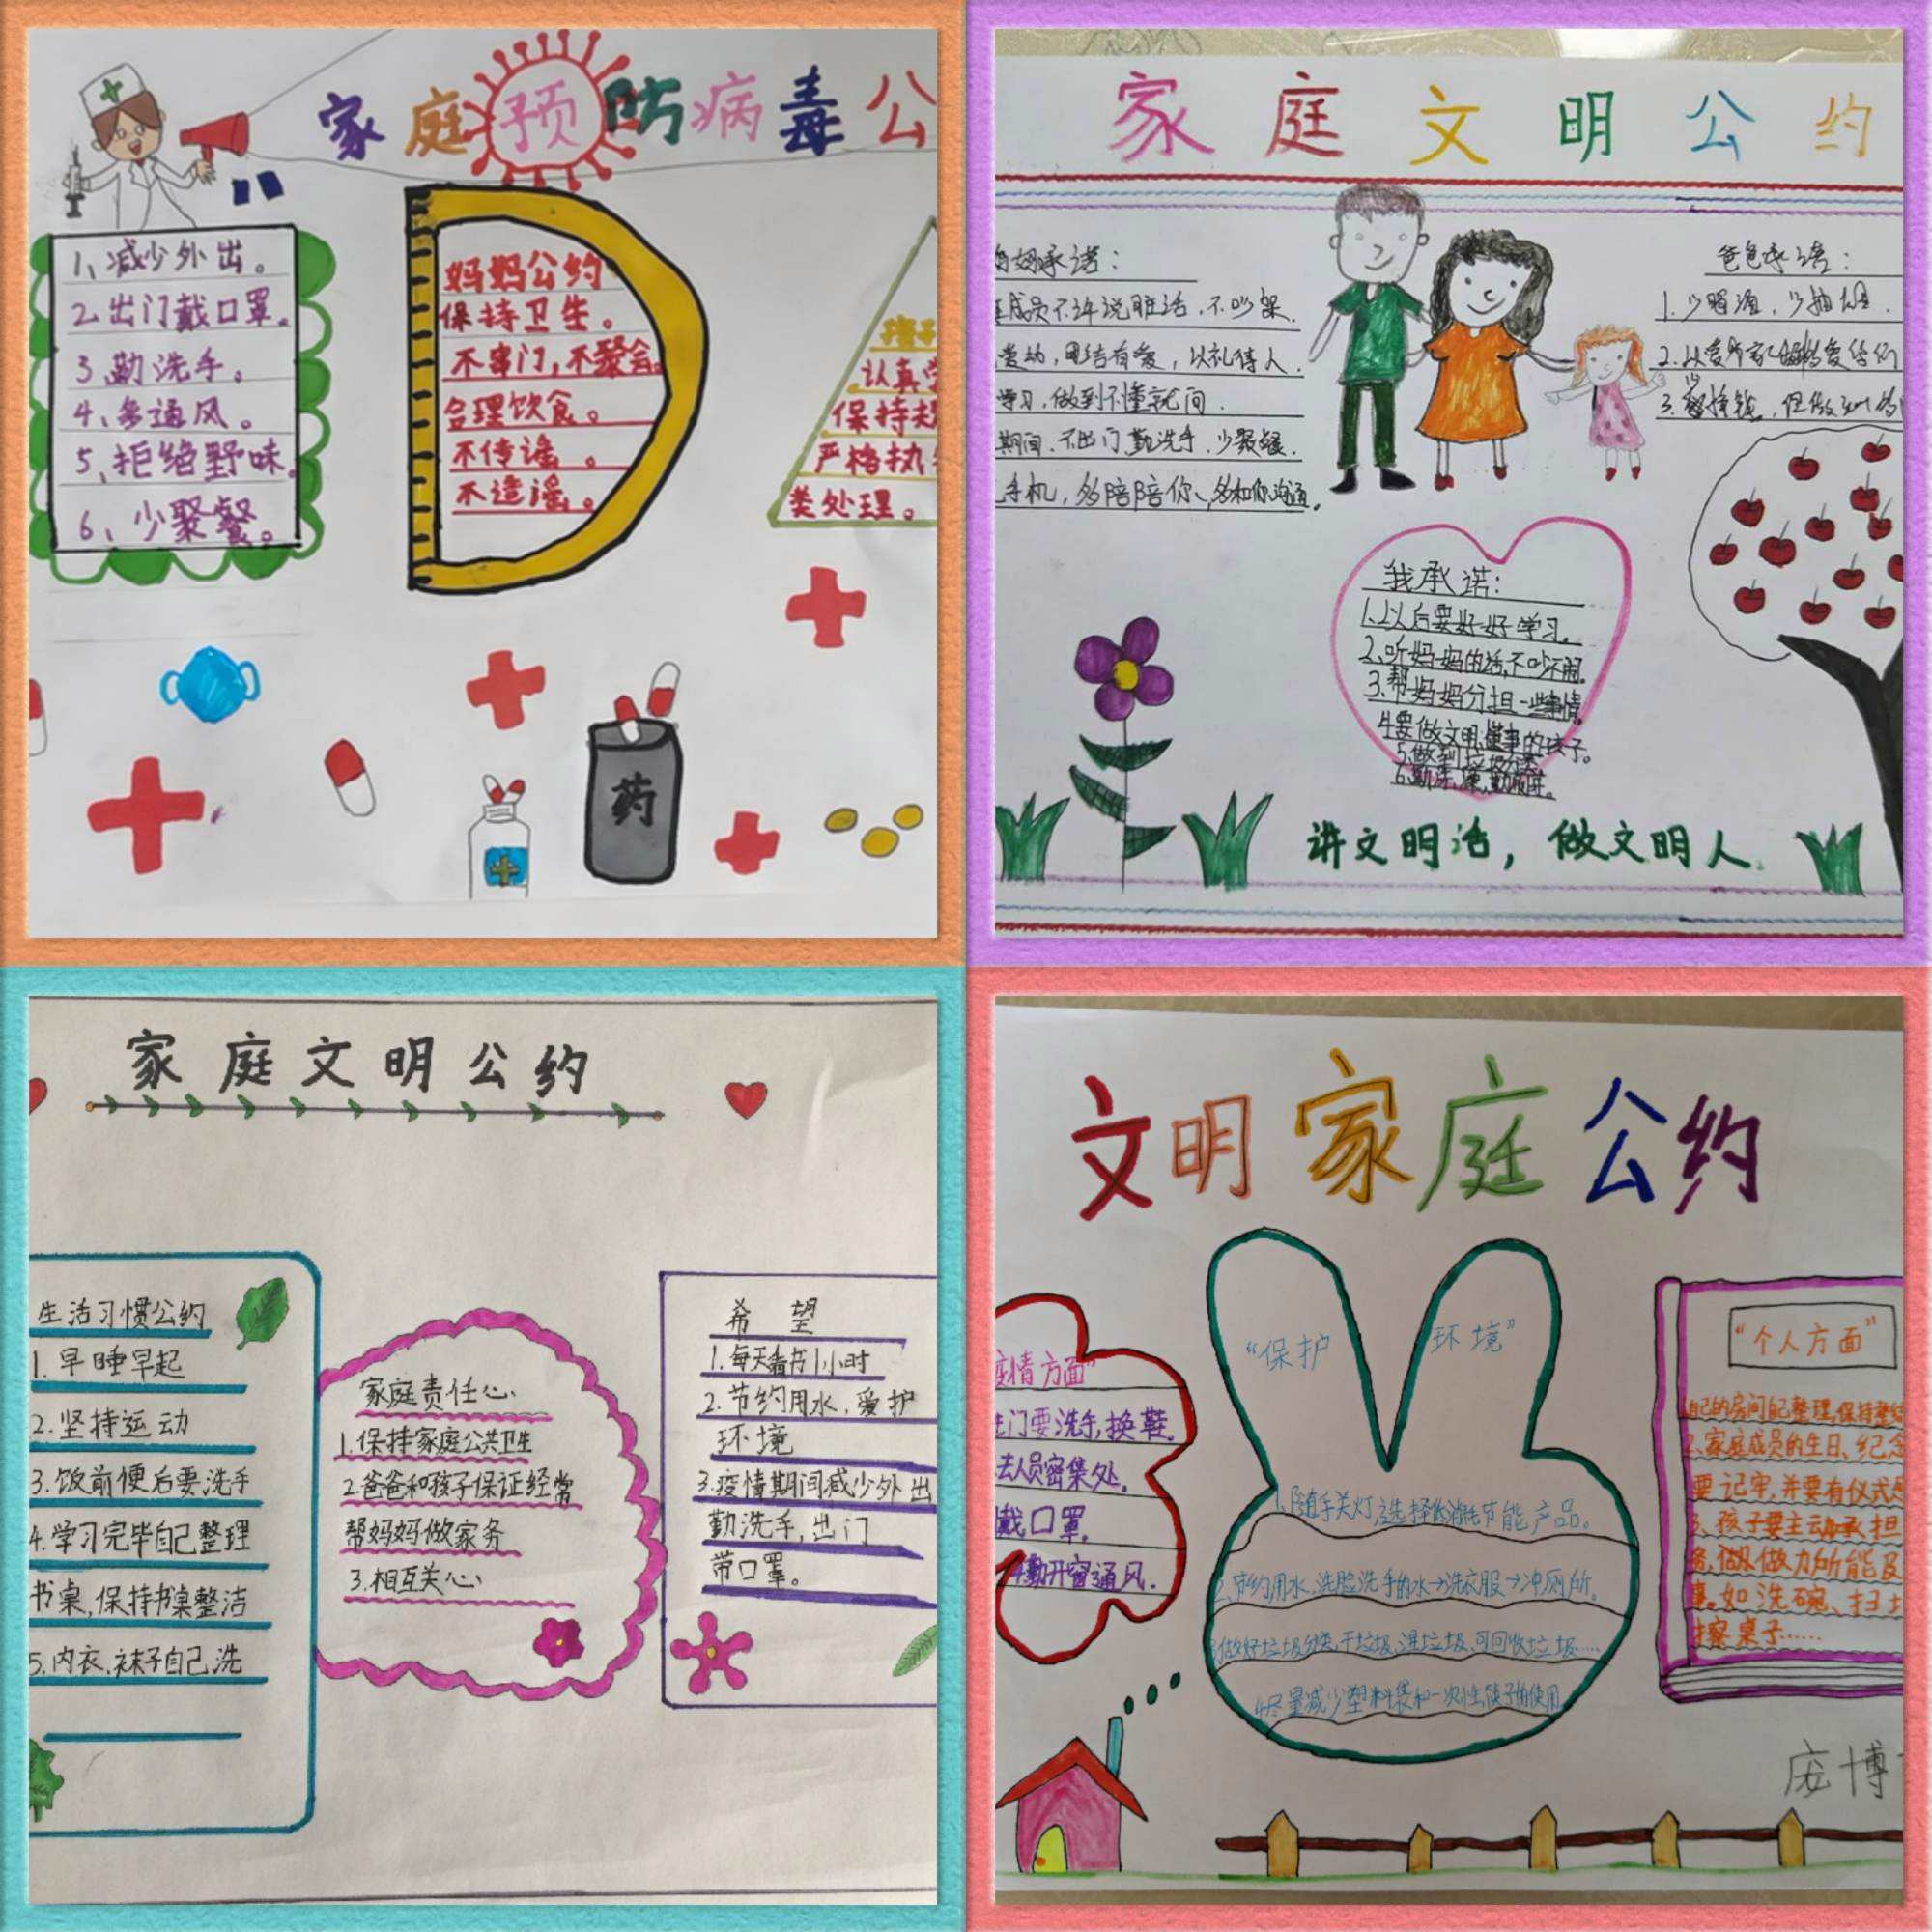 家庭预防病毒公
1、减少外出。
2、出门戴口罩。
3、勤洗手。
4、多通风。
5、拒绝野味。
6、少聚餐。
妈妈公约
保持卫生。
不串门,不聚会。
合理饮食。
不传谣。
不造谣。
认真学
保持
严格执
类处理。
药
家庭文明公约
妈承诺:
成员不许说脏话,不吵架.
爱幼,团结有爱,以礼待人.
学习,做到不懂就问.
期间,不出门,勤洗手,少聚餐.
手机,多陪陪你、多和你沟通.
爸爸承诺:
1.少喝酒,少抽烟.
我承诺:
1.以后要好好学习。
2.听妈妈的话,不吵不闹。
3.帮妈妈分担一些事情。
4.要做文明懂事的孩子。
5.做到垃圾分类
讲文明话,做文明人.
家庭文明公约
生活习惯公约
1.早睡早起
2.坚持运动
3.饭前便后要洗手
4.学习完毕自己整理
书桌,保持书桌整洁
5.内衣.袜子自己洗
家庭责任心
1.保持家庭公共卫生
2.爸爸和孩子保证经常
帮妈妈做家务
3.相互关心
希望
1.每天看书1小时
2.节约用水.爱护
环境
3.疫情期间减少外出
勤洗手,出门
带口罩。
文明家庭公约
疫情方面"
门要洗手,换鞋.
去人员密集处。
戴口罩。
4.勤开窗通风.
"保护环境"
1.随手关灯,选择低消耗节能产品。
2.节约用水.洗脸洗手的水→洗衣服→冲厕所.
3.做好垃圾分类.干垃圾、湿垃圾、可回收垃圾……
4.尽量减少塑料袋和一次性筷子的使用
"个人方面"
自己的房间自己整理,保持整
2.家庭成员的生日、纪念
要记牢,并要有仪式感
3、孩子要主动承担
务,做力所能及
事。如洗碗、扫
擦桌子……
庞博